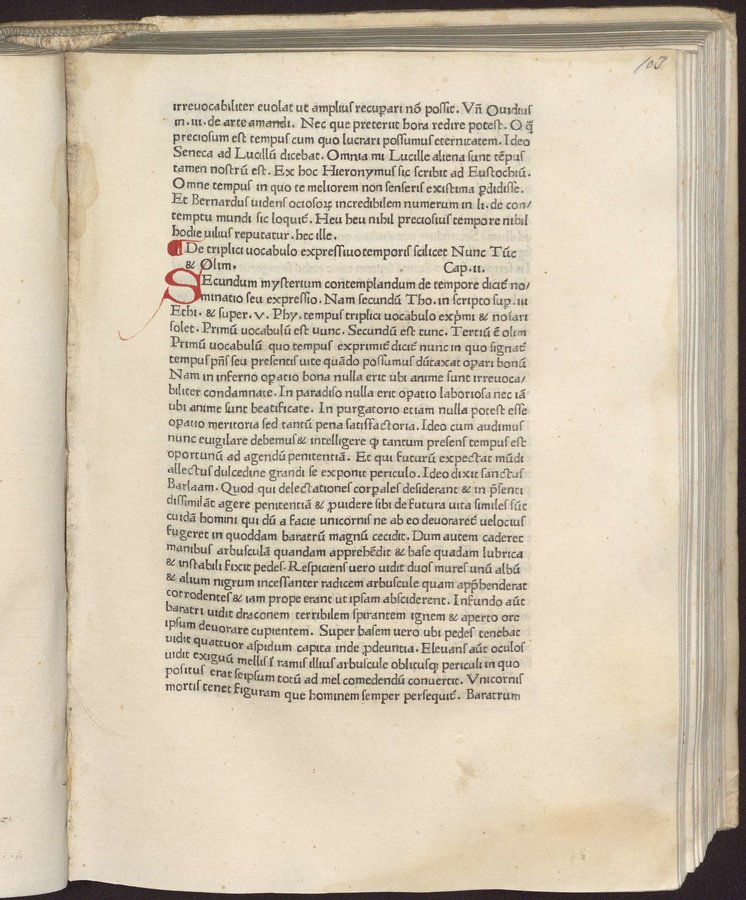 103
irreuocabiliter euolat ut amplius recuꝑari nō possit. Vñ Ouidius
in. iii. de arte amandi. Nec que preteriit hora redire potest. O q̄
preciosum est tempus cum quo lucrari possumus eternitatem. Ideo
Seneca ad Lucillū dicebat. Omnia mi Lucille aliena sunt tēpus
tamen nostrū est. Ex hoc Hieronymus sic scribit ad Eustochiū.
Omne tempus in quo te meliorem non senseris existima ꝑdidisse.
Et Bernardus uidens ociosoꝝ incredibilem numerum in li. de con/
temptu mundi sic loquit᷑. Heu heu nihil preciosius tempore nihil
hodie uilius reputatur. hec ille.
¶ De triplici uocabulo expressiuo temporis scilicet Nunc Tūc
& Olim. Cap. ii.
SEcundum mysterium contemplandum de tempore dicit᷑ no/
minatio seu expressio. Nam secundū Tho. in scripto sup. iii
Ethi. & super. v. Phy. tempus triplici uocabulo exp̄mi & noīari
solet. Primū uocabulū est uunc. Secundū est tunc. Tertiū ē olim
Primū uocabulū quo tempus exprimit᷑ dicit᷑ nunc in quo signat᷑
tempus pn̄s seu presentis uite quādo possumus dūtaxat oꝑari bonū
Nam in inferno oꝑatio bona nulla erit ubi anime sunt irreuoca/
biliter condamnate. In paradiso nulla erit oꝑatio laboriosa nec iā
ubi anime sunt beatificate. In purgatorio etiam nulla potest esse
oꝑatio meritoria sed tantū pena satisfactoria. Ideo cum audimus
nunc euigilare debemus & intelligere ꝙ tantum presens tempus est
oportunū ad agendū penitentiā. Et qui futurū expectat mūdi
allectus dulcedine grandi se exponit periculo. Ideo dixit sanctus
Barlaam. Quod qui delectationes corꝑales desiderant & in p̄senti
dissimilāt agere penitentiā & ꝓuidere sibi de futura uita similes sūt
cuidā homini qui dū a facie unicornis ne ab eo deuoraret᷑ uelocius
fugeret in quoddam baratrū magnū cecidit. Dum autem caderet
manibus arbusculā quandam apprehēdit & base quadam lubrica
& instabili fixit pedes. Respiciens uero uidit duos mures unū albū
& alium nigrum incessanter radicem arbuscule quam app̄henderat
corrodentes & iam prope erant ut ipsam absciderent. In fundo aūt
baratri uidit draconem terribilem spirantem ignem & aperto ore
ipsum deuorare cupientem. Super basem uero ubi pedes tenebat
uidit quattuor aspidum capita inde ꝓdeuntia. Eleuans aūt oculos
uidit exiguū mellis ī ramis illius arbuscule oblitusqꝫ periculi in quo
positus erat seipsum totū ad mel comedendū conuertit. Vnicornis
mortis tenet figuram que hominem semper persequit᷑. Baratrum